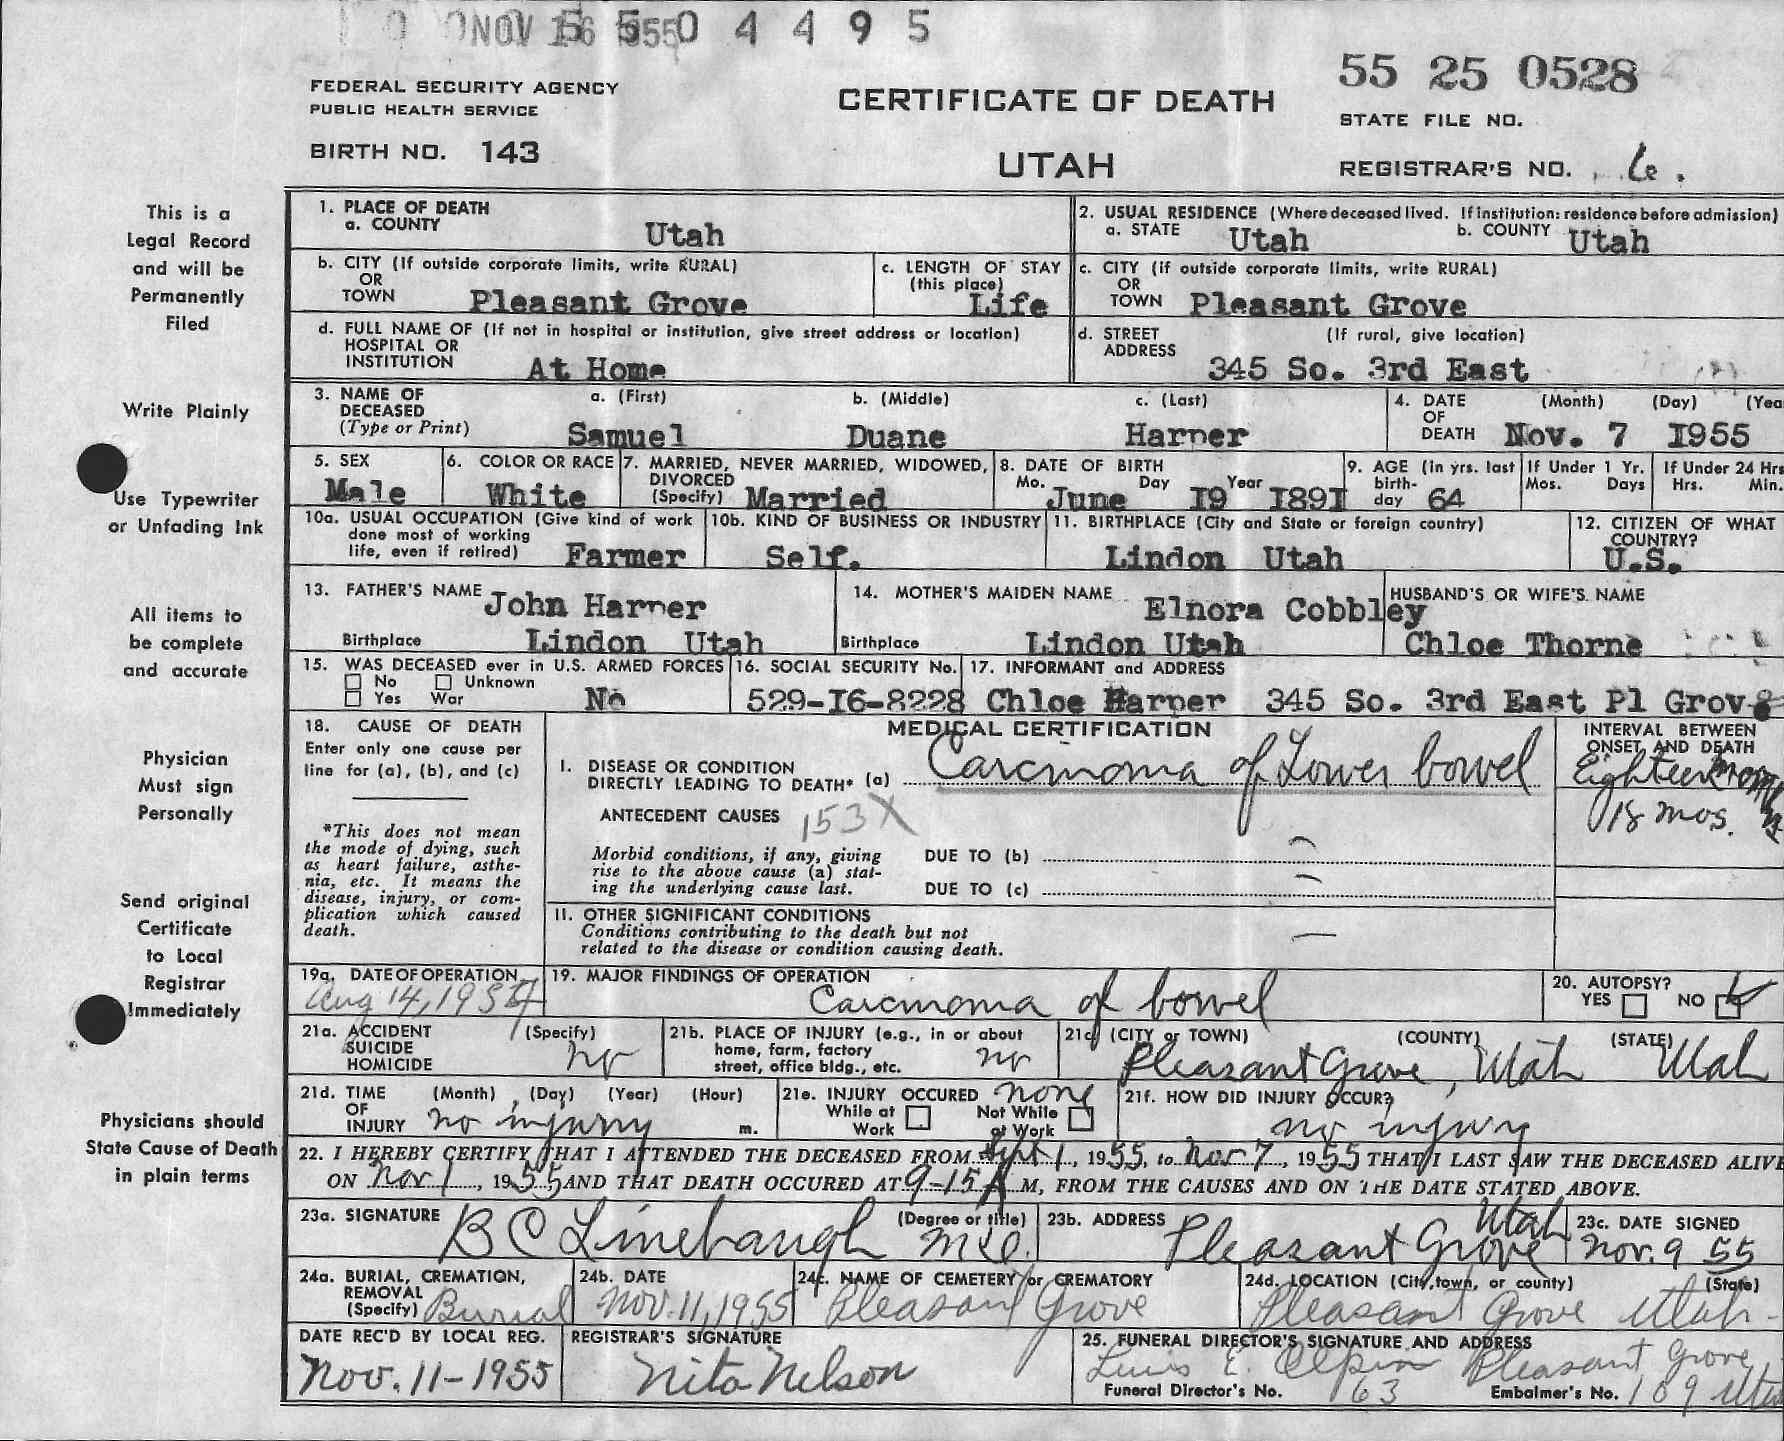 NOV 16 1955 0 4 4 9 5
55 25 0528
FEDERAL SECURITY AGENCY
PUBLIC HEALTH SERVICE
CERTIFICATE OF DEATH
STATE FILE NO.
BIRTH NO. 143
UTAH
REGISTRAR'S NO. 6.
This is a
Legal Record
and will be
Permanently
Filed
Write Plainly
Use Typewriter
or Unfading Ink
All items to
be complete
and accurate
Physician
Must sign
Personally
Send original
Certificate
to Local
Registrar
Immediately
Physicians should
State Cause of Death
in plain terms
1. PLACE OF DEATH
a. COUNTY Utah
2. USUAL RESIDENCE (Where deceased lived. If institution: residence before admission)
a. STATE Utah b. COUNTY Utah
b. CITY (If outside corporate limits, write RURAL)
OR
TOWN Pleasant Grove
c. LENGTH OF STAY
(this place)
Life
c. CITY (if outside corporate limits, write RURAL)
OR
TOWN Pleasant Grove
d. FULL NAME OF (If not in hospital or institution, give street address or location)
HOSPITAL OR
INSTITUTION At Home
d. STREET (If rural, give location)
ADDRESS 345 So. 3rd East
3. NAME OF DECEASED (Type or Print)
a. (First) b. (Middle) c. (Last)
Samuel Duane Harper
4. DATE OF DEATH (Month) (Day) (Yea
Nov. 7 1955
5. SEX
Male
6. COLOR OR RACE
White
7. MARRIED, NEVER MARRIED, WIDOWED,
DIVORCED
(Specify) Married
8. DATE OF BIRTH
Mo. Day Year
June 19 1891
9. AGE (in yrs. last
birth-
day 64
If Under 1 Yr.
Mos. Days
If Under 24 Hrs
Hrs. Min.
10a. USUAL OCCUPATION (Give kind of work
done most of working
life, even if retired) Farmer
10b. KIND OF BUSINESS OR INDUSTRY
Self.
11. BIRTHPLACE (City and State or foreign country)
Lindon Utah
12. CITIZEN OF WHAT
COUNTRY?
U.S.
13. FATHER'S NAME John Harper
Birthplace Lindon Utah
14. MOTHER'S MAIDEN NAME Elnora Cobbley
Birthplace Lindon Utah
HUSBAND'S OR WIFE'S NAME
Chloe Thorne
15. WAS DECEASED ever in U.S. ARMED FORCES
No Unknown
Yes War No
16. SOCIAL SECURITY No.
529-16-8228
17. INFORMANT and ADDRESS
Chloe Harper 345 So. 3rd East Pl Grove
18. CAUSE OF DEATH
Enter only one cause per
line for (a), (b), and (c)
*This does not mean
the mode of dying, such
as heart failure, asthe-
nia, etc. It means the
disease, injury, or com-
plication which caused
death.
MEDICAL CERTIFICATION
I. DISEASE OR CONDITION
DIRECTLY LEADING TO DEATH* (a) Carcinoma of Lower bowel
ANTECEDENT CAUSES 153X
Morbid conditions, if any, giving
rise to the above cause (a) stat-
ing the underlying cause last.
DUE TO (b)
DUE TO (c)
II. OTHER SIGNIFICANT CONDITIONS
Conditions contributing to the death but not
related to the disease or condition causing death.
INTERVAL BETWEEN
ONSET AND DEATH
Eighteen months
18 mos.
19a. DATE OF OPERATION
Aug 14, 1954
19. MAJOR FINDINGS OF OPERATION
Carcinoma of bowel
20. AUTOPSY?
YES NO
21a. ACCIDENT (Specify)
SUICIDE
HOMICIDE no
21b. PLACE OF INJURY (e.g., in or about
home, farm, factory
street, office bldg., etc. no
21c. (CITY or TOWN) (COUNTY) (STATE)
Pleasant Grove, Utah Utah
21d. TIME (Month) (Day) (Year) (Hour)
OF
INJURY no injury m.
21e. INJURY OCCURED none
While at Work Not While at Work
21f. HOW DID INJURY OCCUR?
no injury
22. I HEREBY CERTIFY THAT I ATTENDED THE DECEASED FROM Sept 1, 1955, to Nov 7, 1955 THAT I LAST SAW THE DECEASED ALIVE
ON Nov 1, 1955 AND THAT DEATH OCCURED AT 9-15 A M, FROM THE CAUSES AND ON THE DATE STATED ABOVE.
23a. SIGNATURE (Degree or title)
B C Linebaugh M.D.
23b. ADDRESS
Pleasant Grove Utah
23c. DATE SIGNED
Nov. 9 55
24a. BURIAL, CREMATION,
REMOVAL
(Specify) Burial
24b. DATE
Nov. 11, 1955
24c. NAME OF CEMETERY or CREMATORY
Pleasant Grove
24d. LOCATION (City, town, or county) (State)
Pleasant Grove Utah-
DATE REC'D BY LOCAL REG.
Nov. 11-1955
REGISTRAR'S SIGNATURE
Nita Nelson
25. FUNERAL DIRECTOR'S SIGNATURE AND ADDRESS
E. Olpin Pleasant Grove
Funeral Director's No. 63 Embalmer's No. 109 Utah